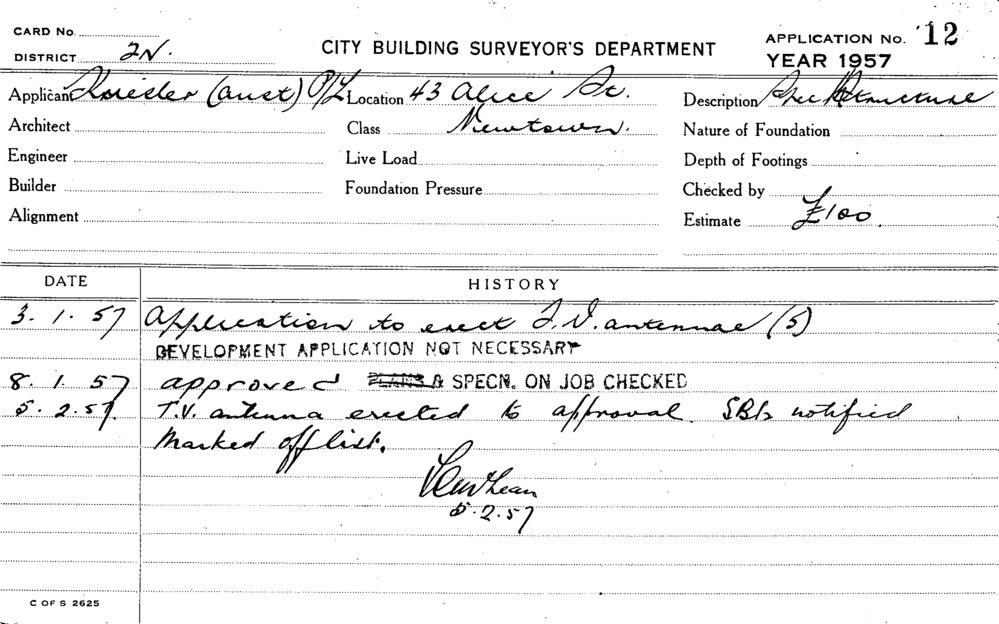 CARD No.
DISTRICT 2N.
CITY BUILDING SURVEYOR'S DEPARTMENT
APPLICATION No. 12
YEAR 1957
Applicant Kriesler (aust) P/L Location 43 Alice St. Description
Architect Class Newtown. Nature of Foundation
Engineer Live Load Depth of Footings
Builder Foundation Pressure Checked by
Alignment Estimate £100.
DATE HISTORY
3. 1. 57 Application to erect T.V. antennae (5)
DEVELOPMENT APPLICATION NOT NECESSARY
8. 1. 57 approved PLANS & SPECN. ON JOB CHECKED
5. 2. 57. T.V. antenna erected to approval. notified
Marked off list.
5. 2. 57
C OF S 2625